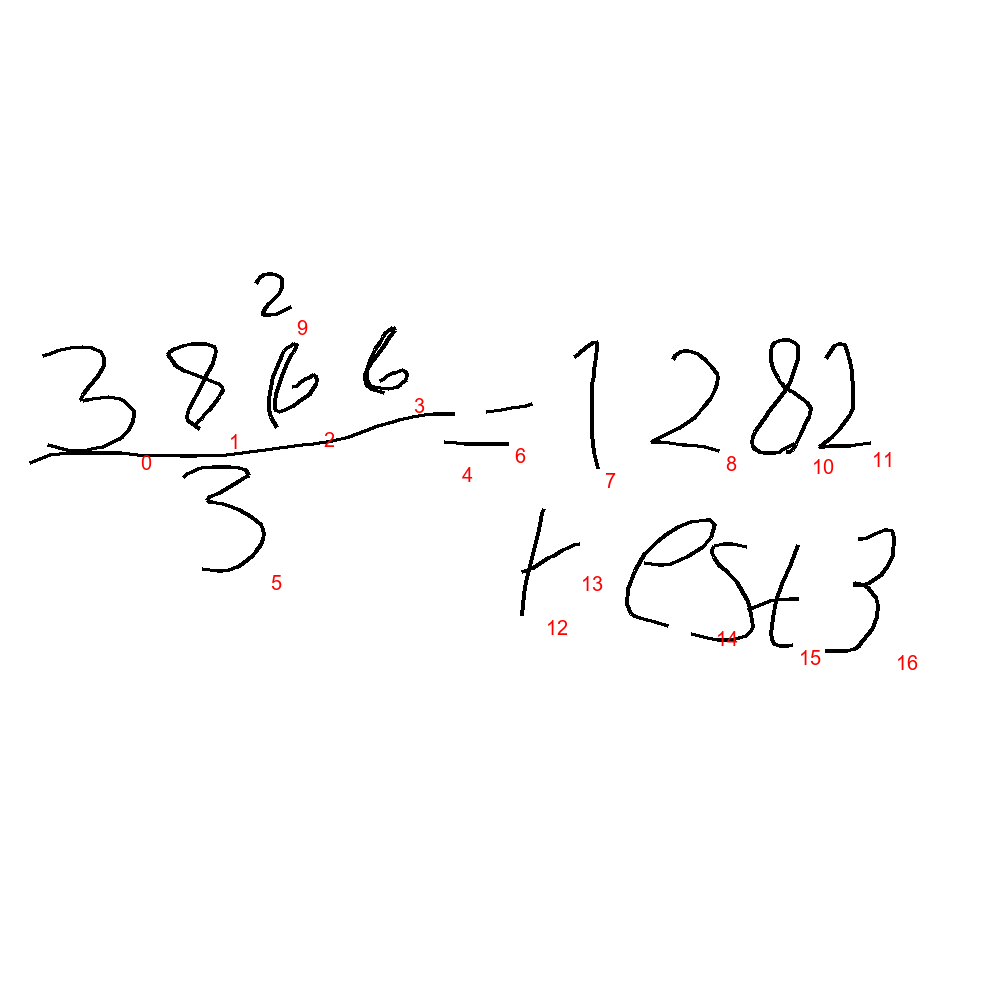 2
3866 = 1282
3
rest 3
0 1 2 3 4 5 6 7 8 9 10 11 12 13 14 15 16